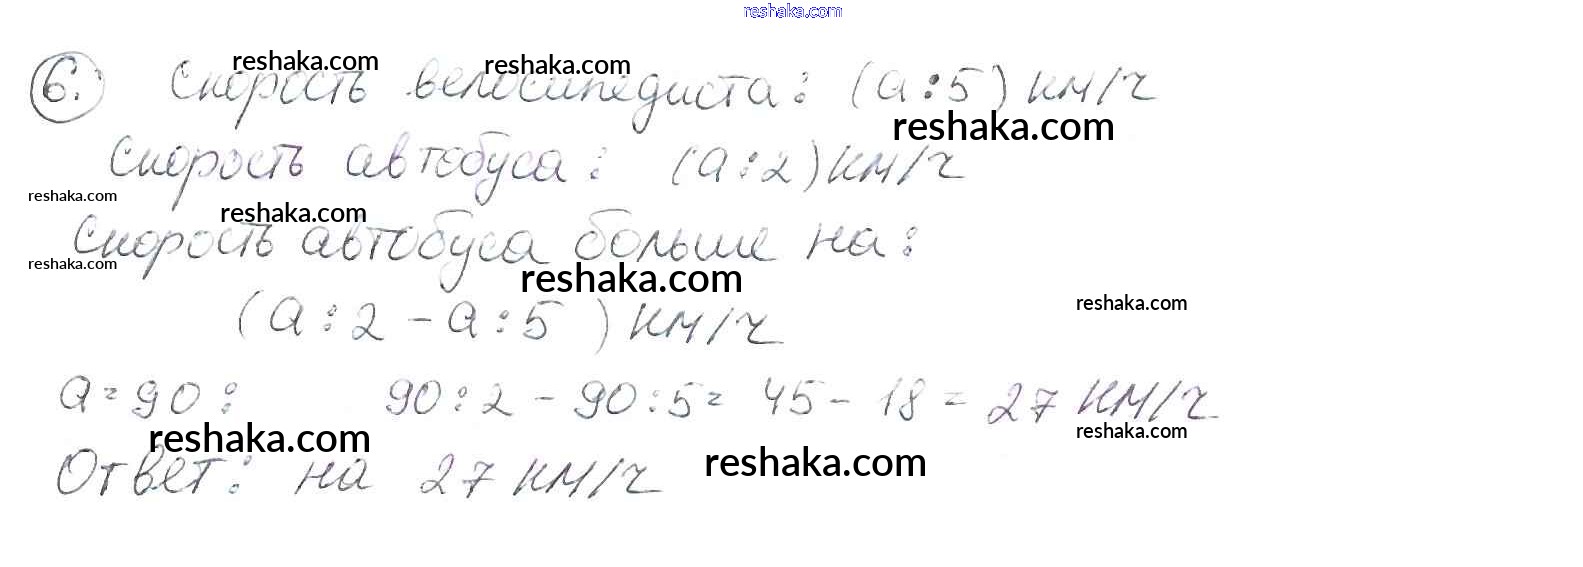 reshaka.com
6. Скорость велосипедиста: (а:5) км/ч
reshaka.com reshaka.com
reshaka.com
Скорость автобуса: (а:2) км/ч
reshaka.com
reshaka.com
Скорость автобуса больше на:
reshaka.com
reshaka.com
reshaka.com
(а:2 - а:5) км/ч
а = 90: 90:2 - 90:5 = 45 - 18 = 27 км/ч
reshaka.com
reshaka.com
reshaka.com
Ответ: на 27 км/ч